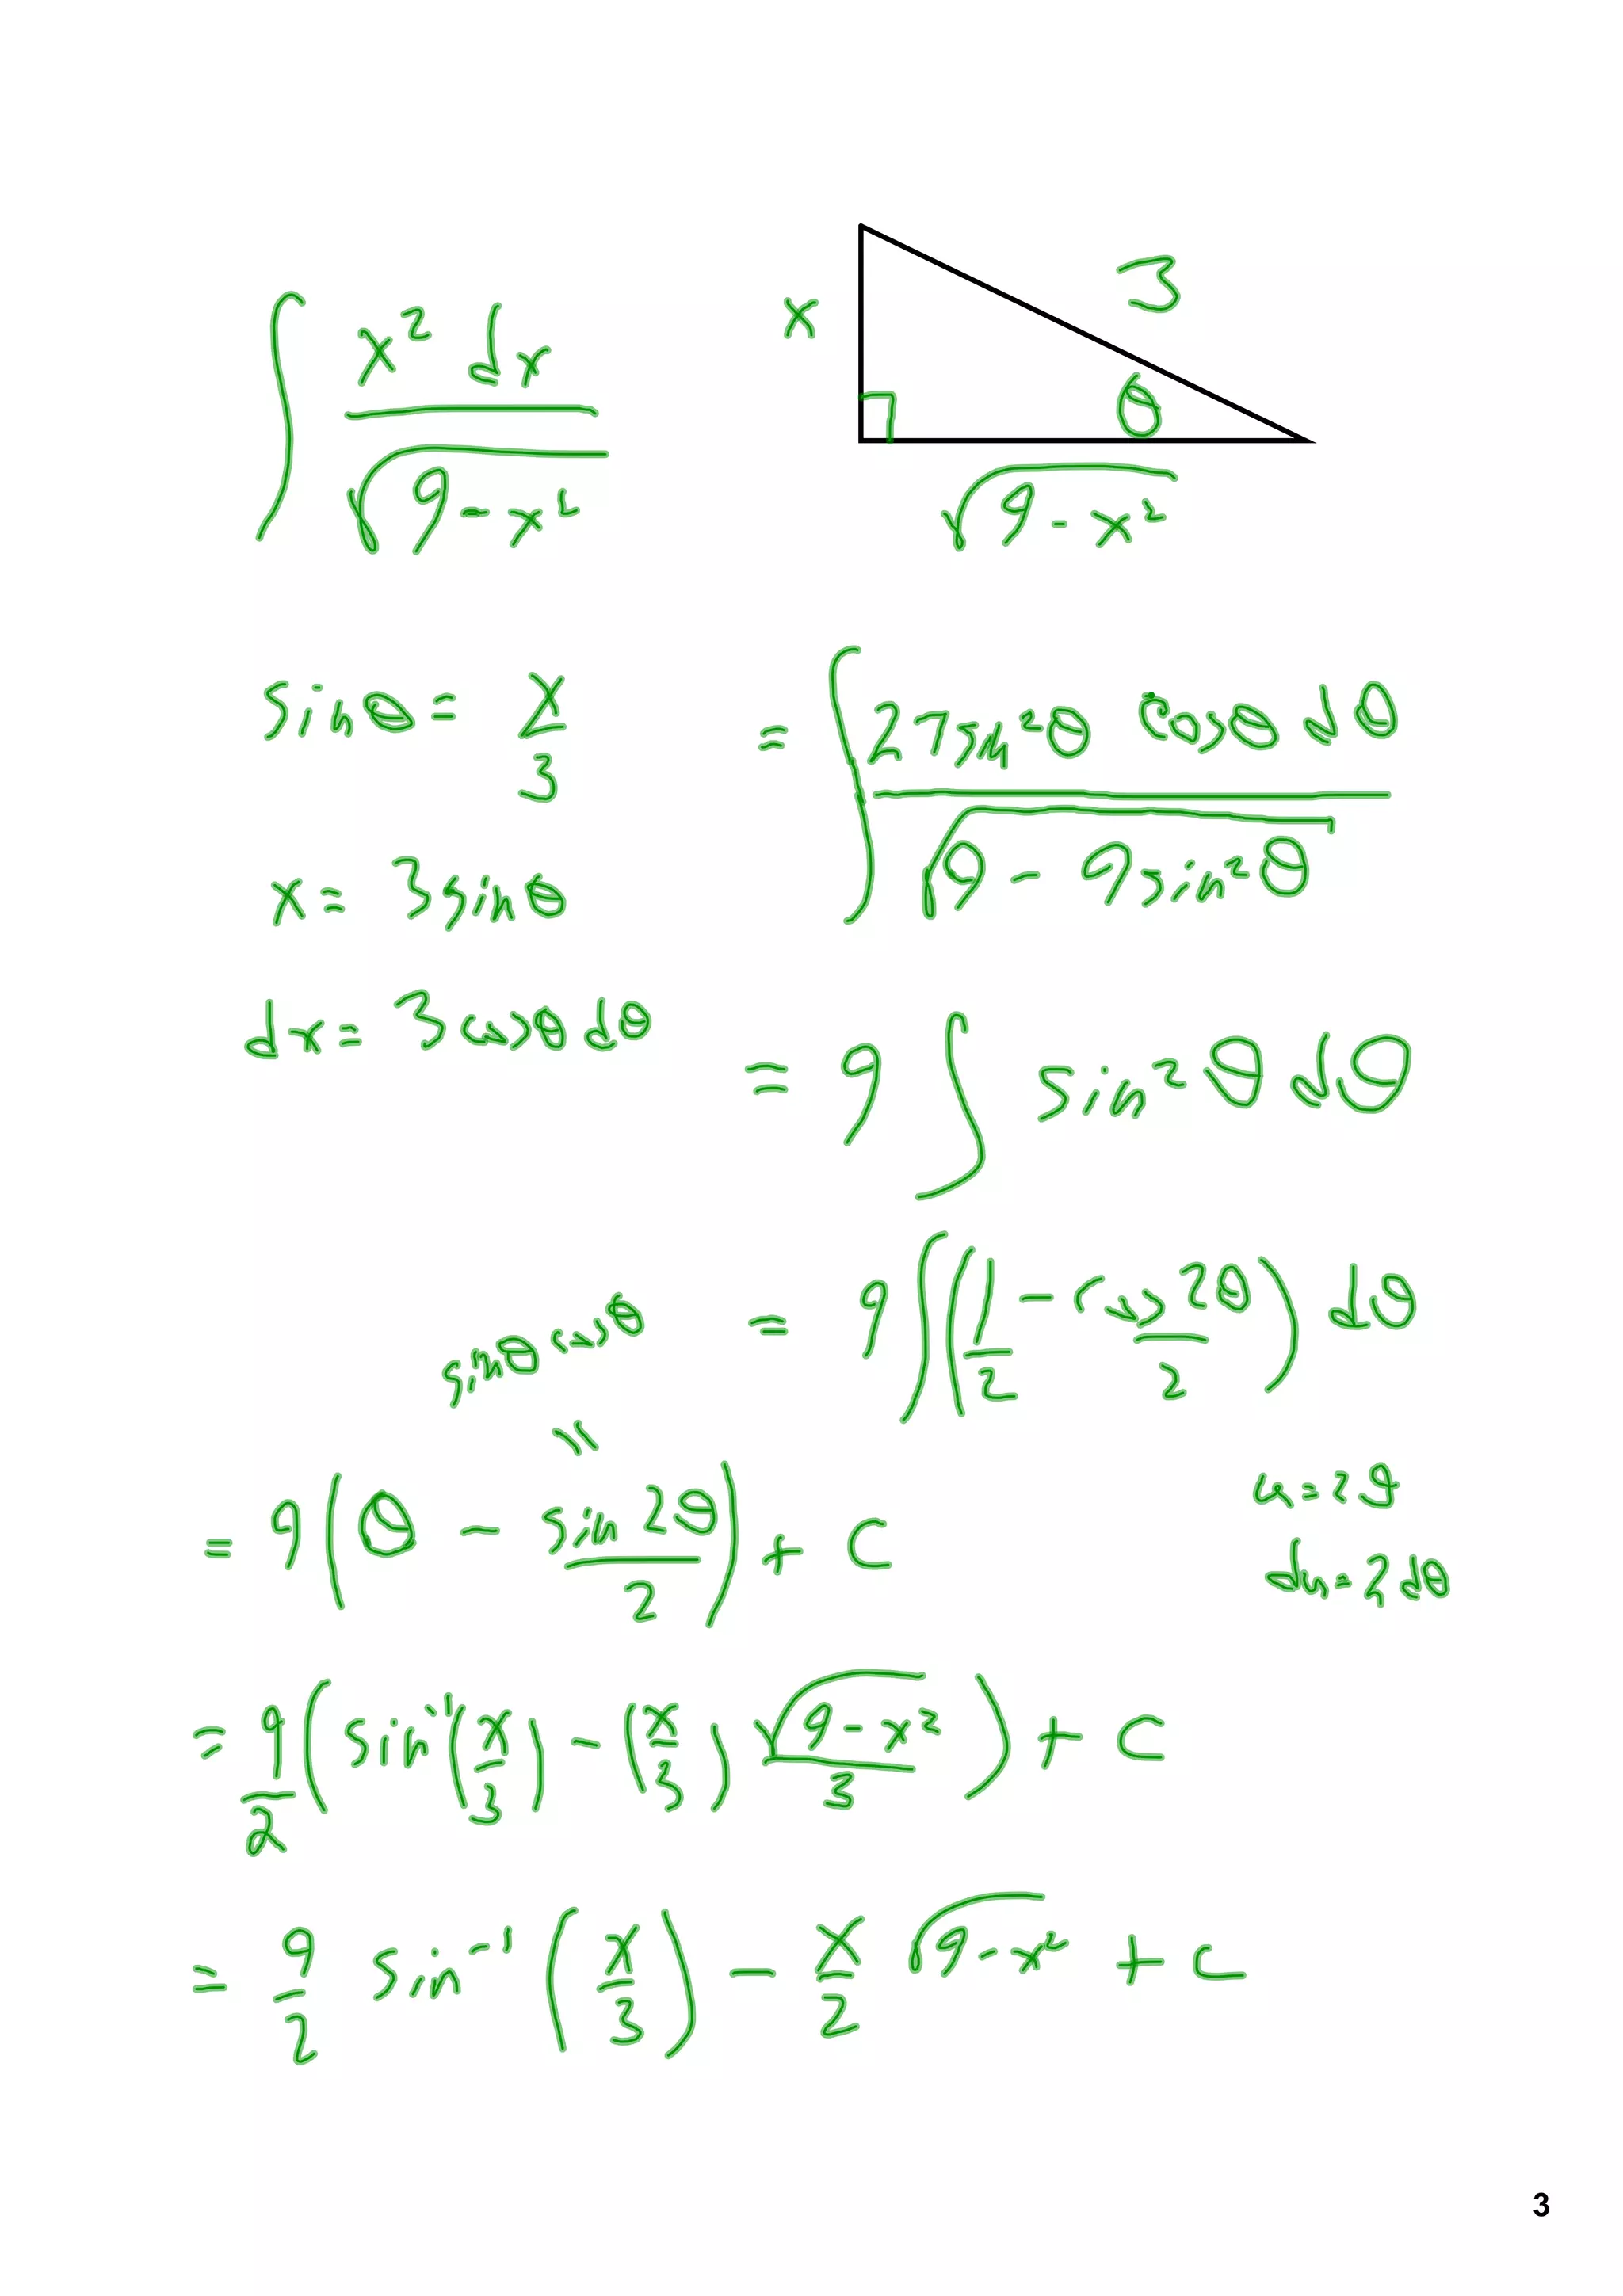 ∫ x² dx / √(9 - x²)
x 3 θ √(9 - x²)
sinθ = x/3
= ∫ 27 sin²θ cosθ dθ / √(9 - 9 sin²θ)
x = 3 sinθ
dx = 3 cosθ dθ
= 9 ∫ sin²θ dθ
= 9 ∫ (1/2 - cos 2θ / 2) dθ
sinθ cosθ
=
u = 2θ
= 9 (θ - sin 2θ / 2) + C
du = 2 dθ
= 9/2 (sin⁻¹(x/3) - (x/3) √(9 - x²) / 3) + C
= 9/2 sin⁻¹ (x/3) - x/2 √(9 - x²) + C
3